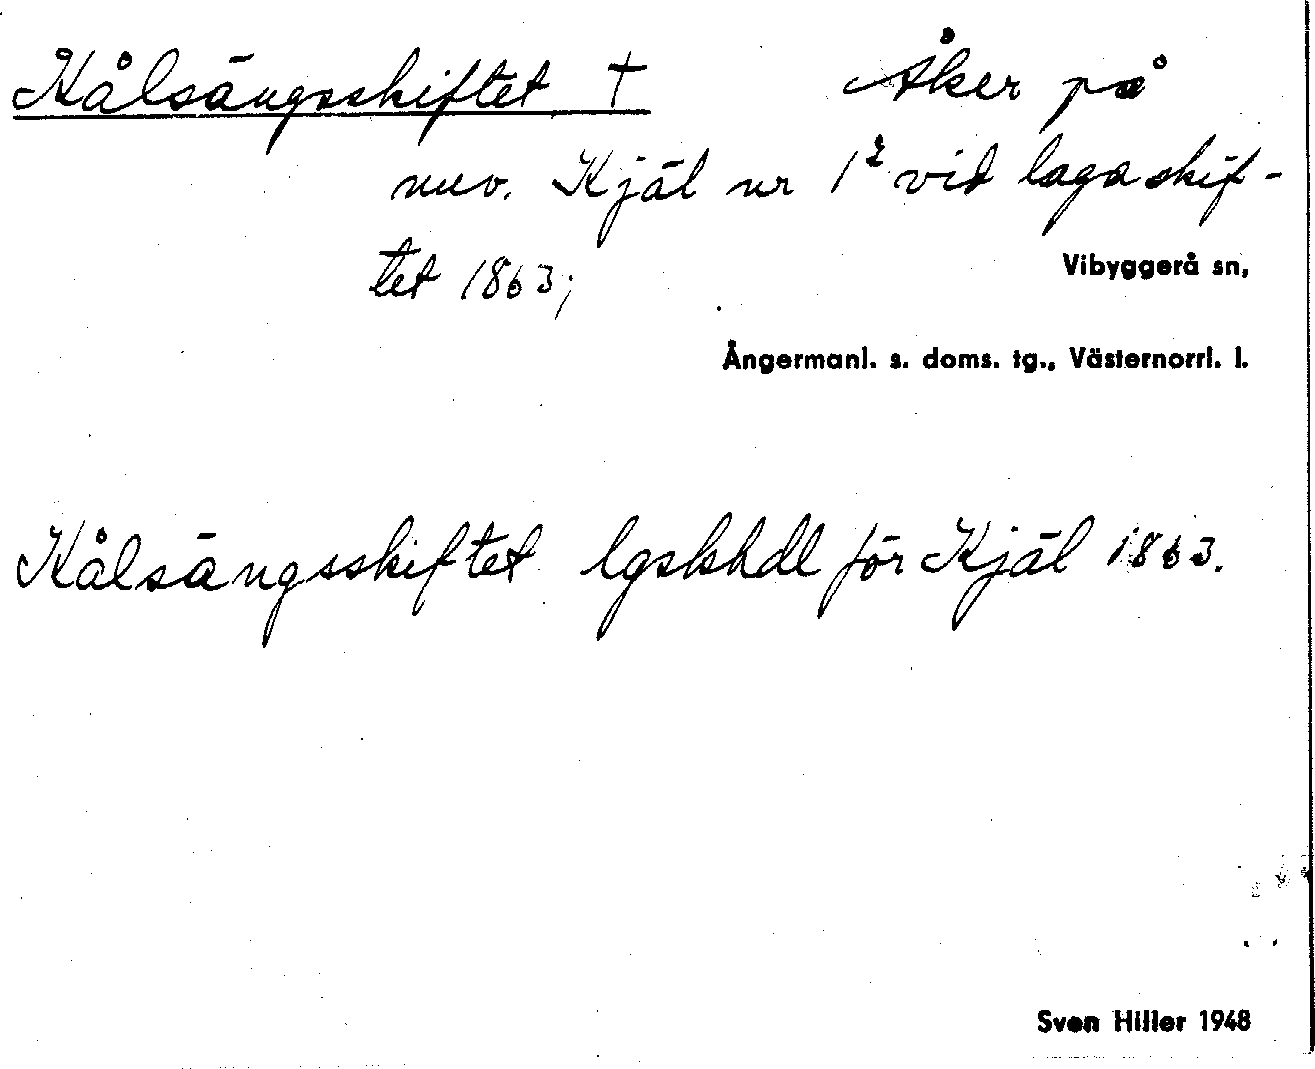 Kålsängsskiftet † Åker på
nuv. Kjäl nr 1² vid laga skif-
tet 1863;
Vibyggerå sn,
Ångermanl. s. doms. tg., Västernorrl. l.
Kålsängsskiftet lgskhdl för Kjäl 1863.
Sven Hiller 1948